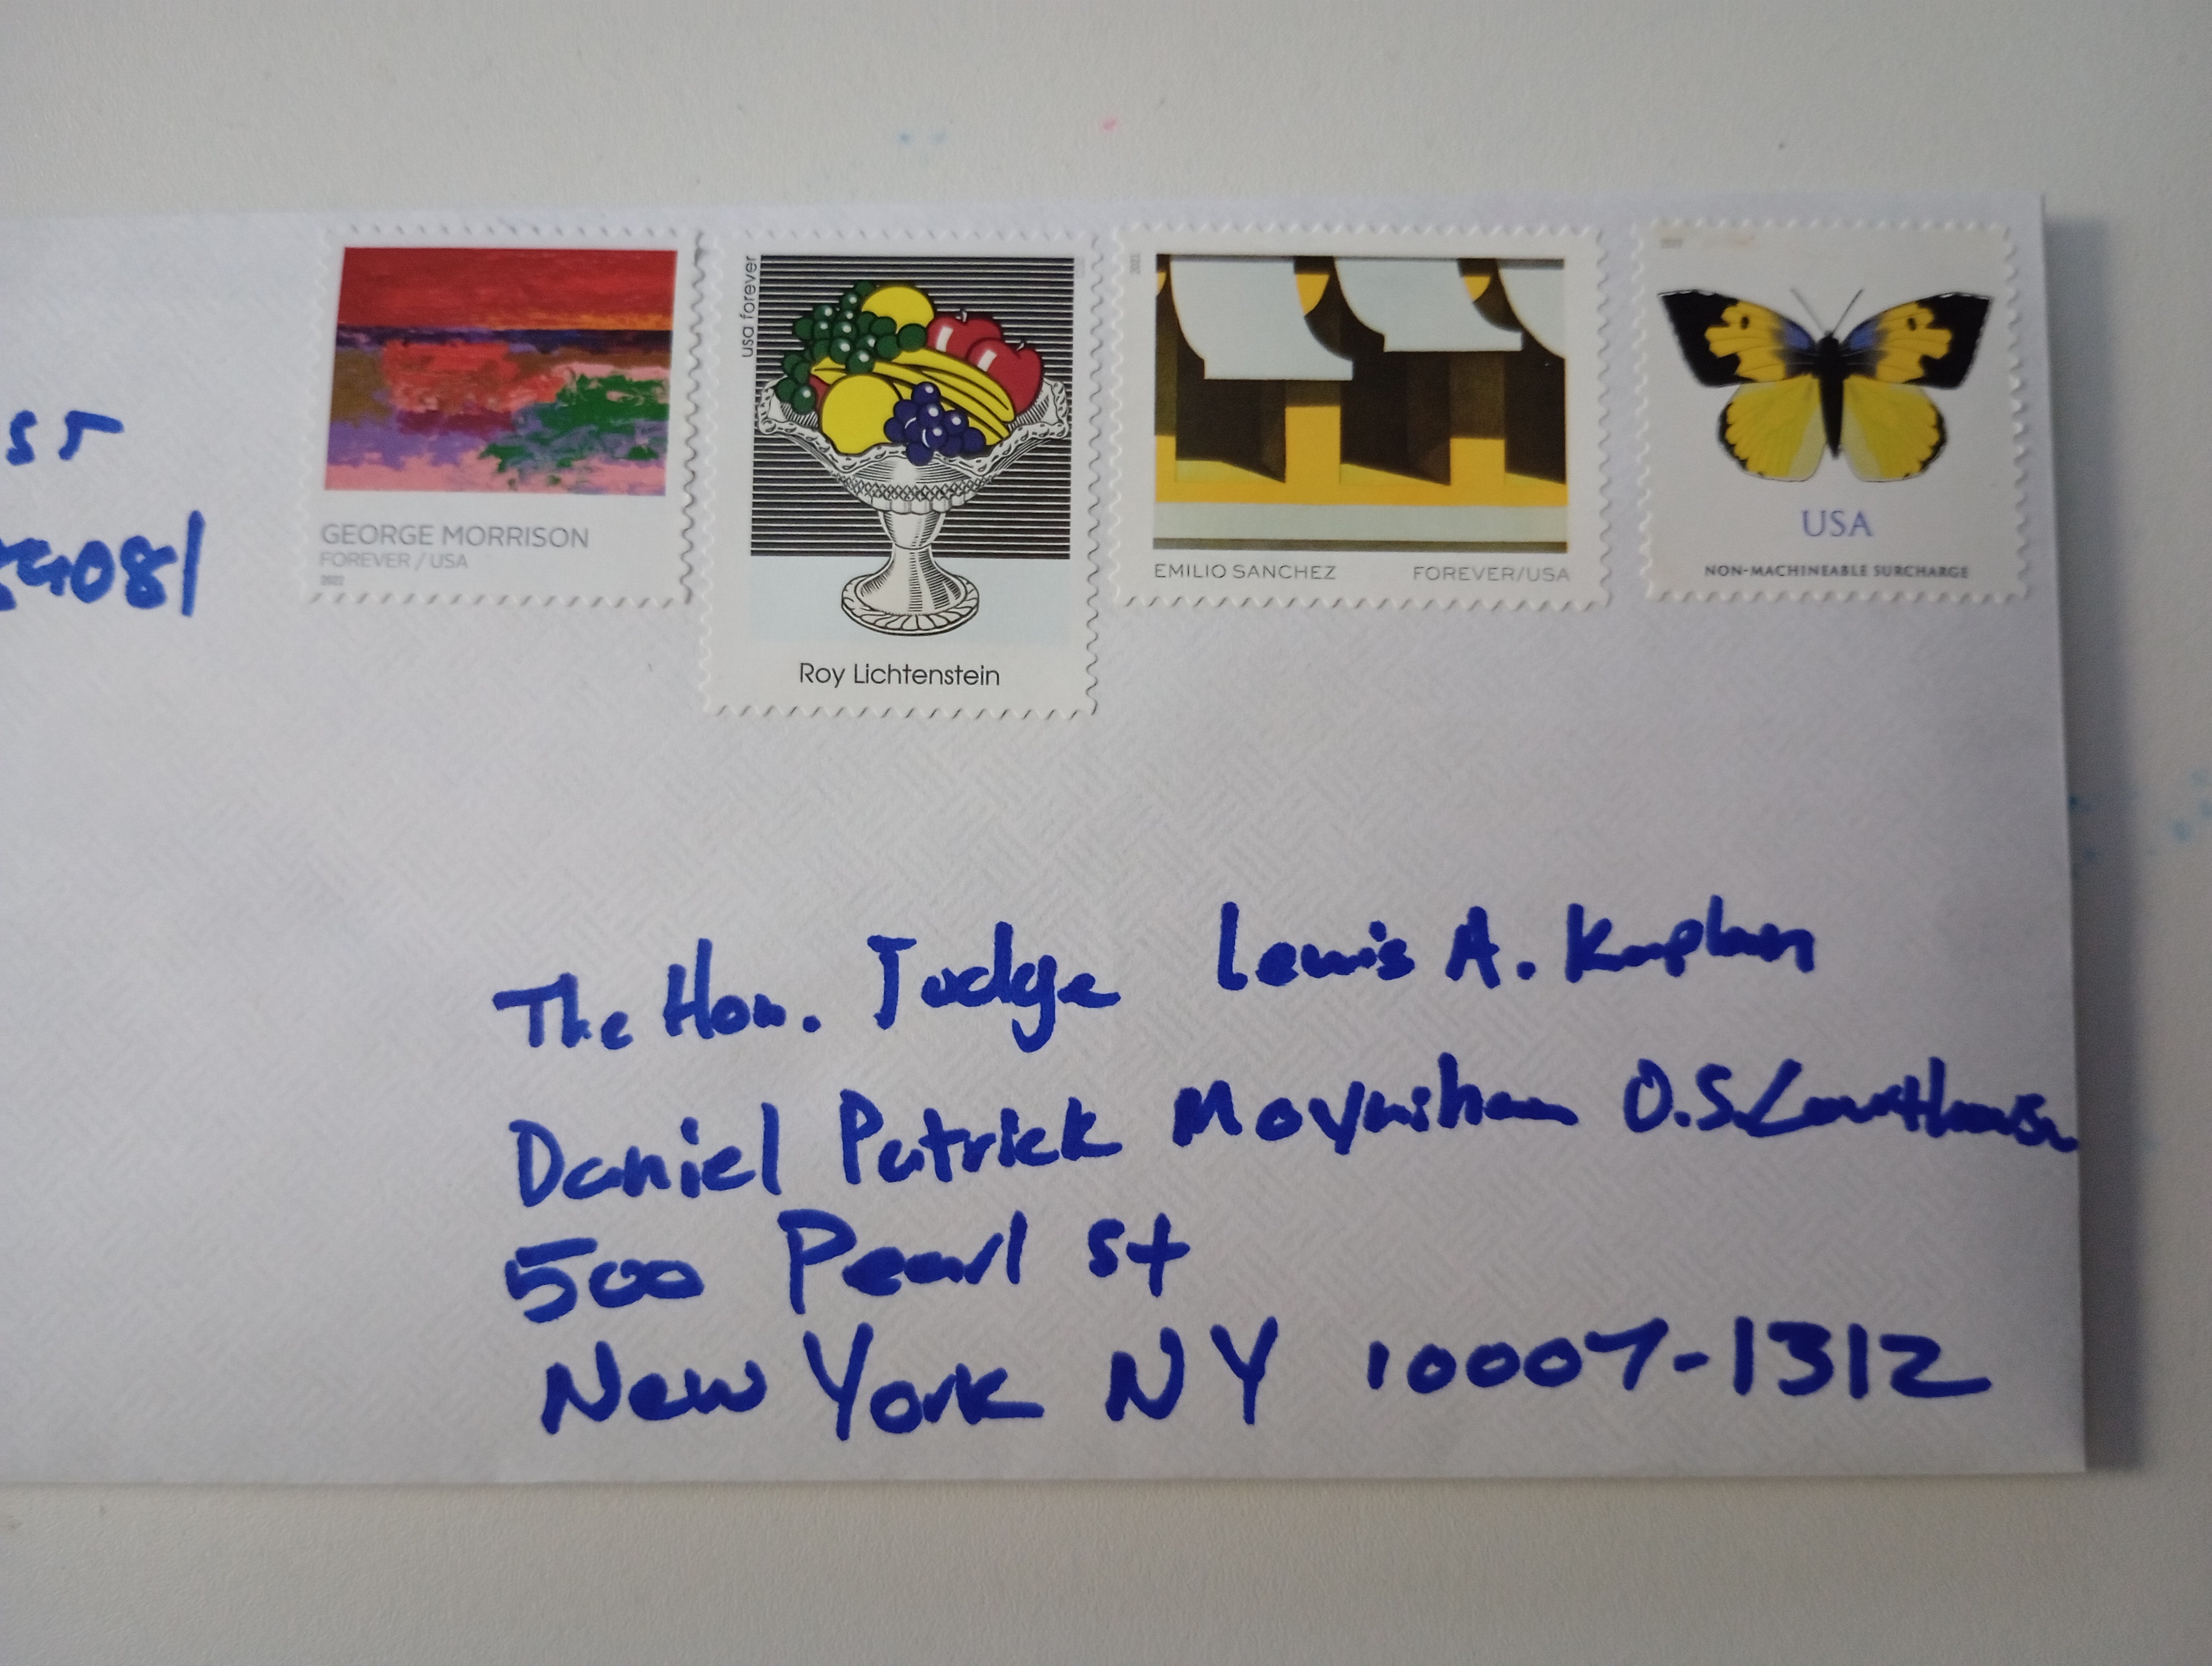 ST
89081
GEORGE MORRISON
FOREVER / USA
2022
usa forever
Roy Lichtenstein
2021
EMILIO SANCHEZ FOREVER/USA
USA
NON-MACHINEABLE SURCHARGE
The Hon. Judge Lewis A. Kaplan
Daniel Patrick Moynihan U.S. Courthouse
500 Pearl St
New York NY 10007-1312